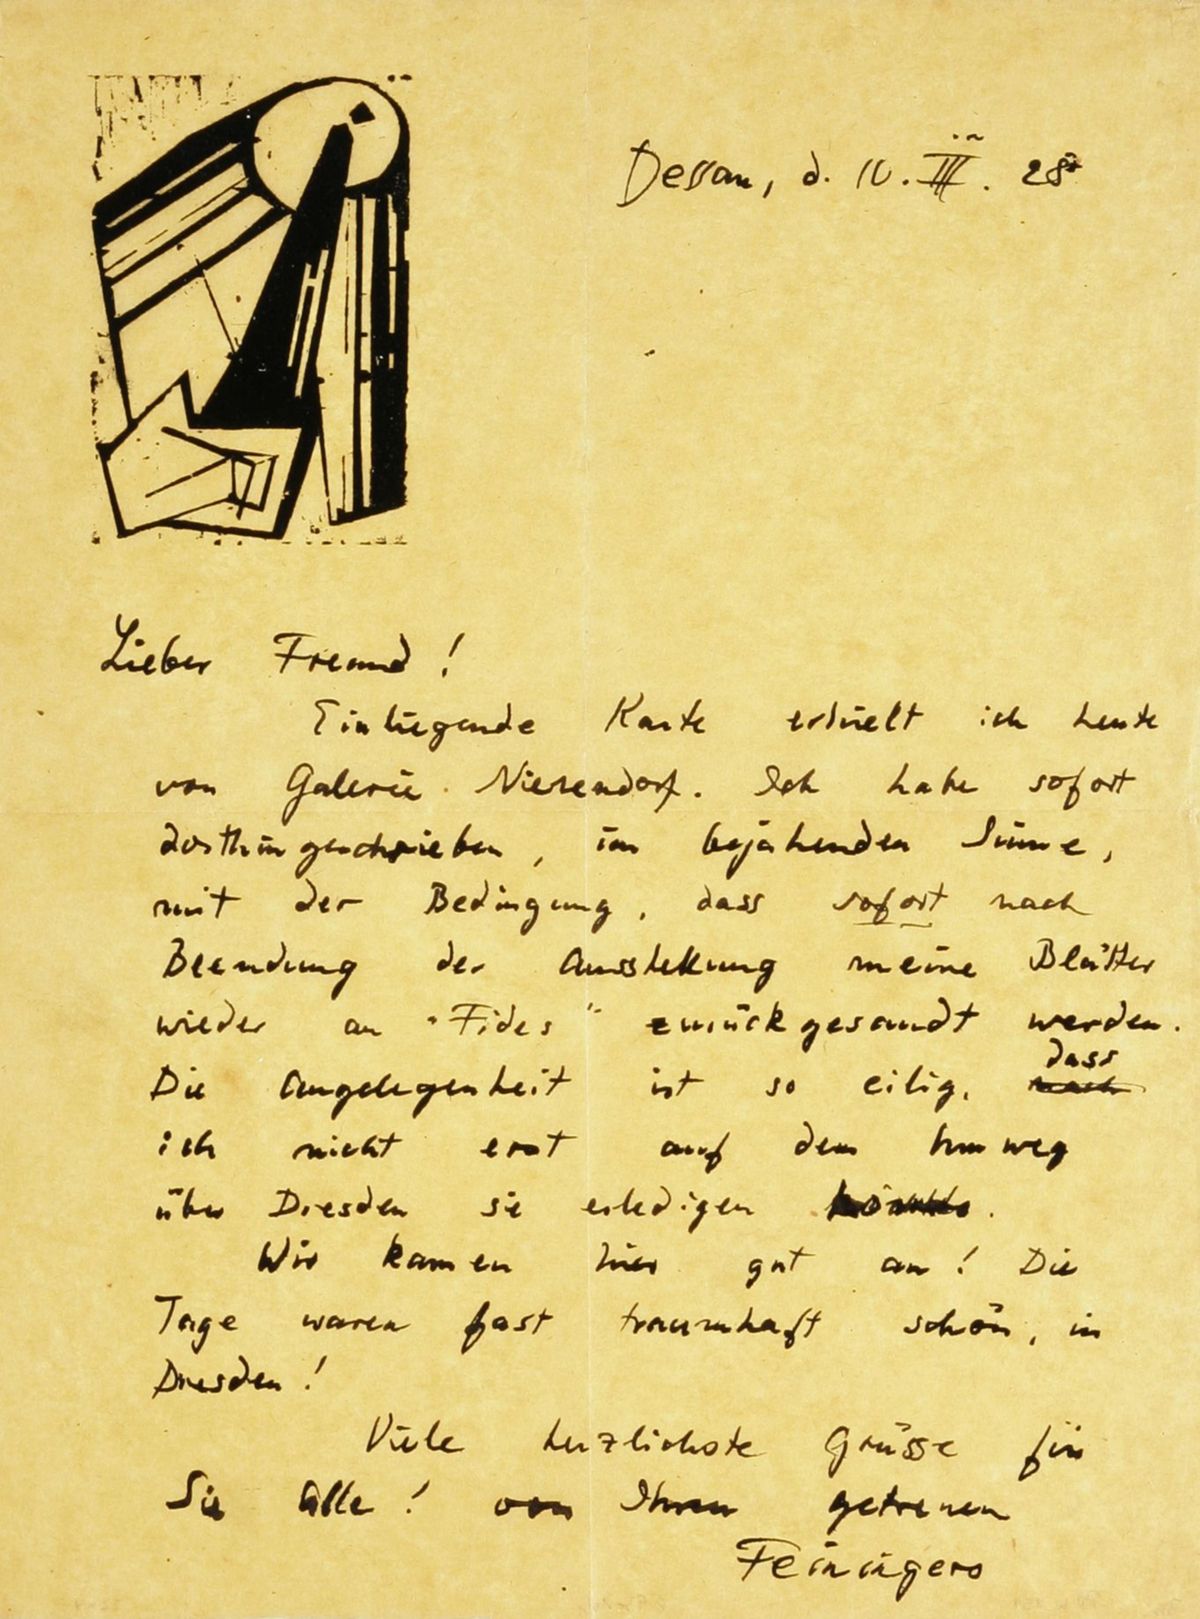 Dessau, d. 10. III. 28
Lieber Freund!
Einliegende Karte erhielt ich heute
von Galerie Nierendorf. Ich habe sofort
dorthin geschrieben, im bejahenden Sinne,
mit der Bedingung, dass sofort nach
Beendung der Ausstellung meine Blätter
wieder an "Fides" zurückgesandt werden.
Die Angelegenheit ist so eilig, dass
nach
ich nicht erst auf dem Umweg
über Dresden sie erledigen könnte.
Wir kamen hier gut an! Die
Tage waren fast traumhaft schön, in
Dresden!
Viele herzlichste Grüsse für
Sie Alle! von Ihren getreuen
Feiningers